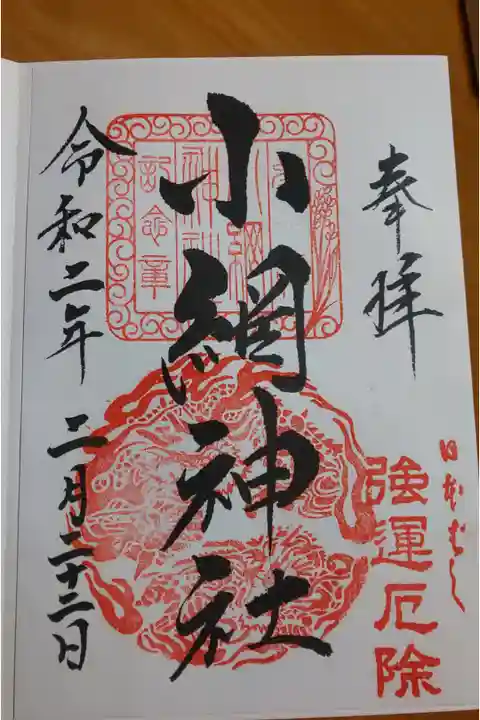 奉拝
日本ばし
強運厄除
小網神社
小網
神社
記念章
令和二年 二月二十二日